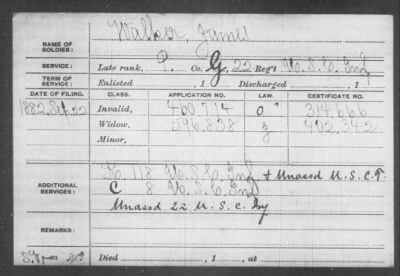 NAME OF SOLDIER: Walker, James
SERVICE: Late rank, P. Co. G, 22 Reg't U. S. C. Inf
TERM OF SERVICE: Enlisted , 1 Discharged , 1
DATE OF FILING. CLASS. APPLICATION NO. LAW. CERTIFICATE NO.
1882, Sep. 22 Invalid, 460,774 O 314,666
Widow, 596,838 402,342
Minor,
ADDITIONAL SERVICES: 118 U. S. C. Inf & Unassd U. S. C. T.
C 8 U. S. C. Inf
Unassd 22 U. S. C. Inf
REMARKS:
Died , 1 , at